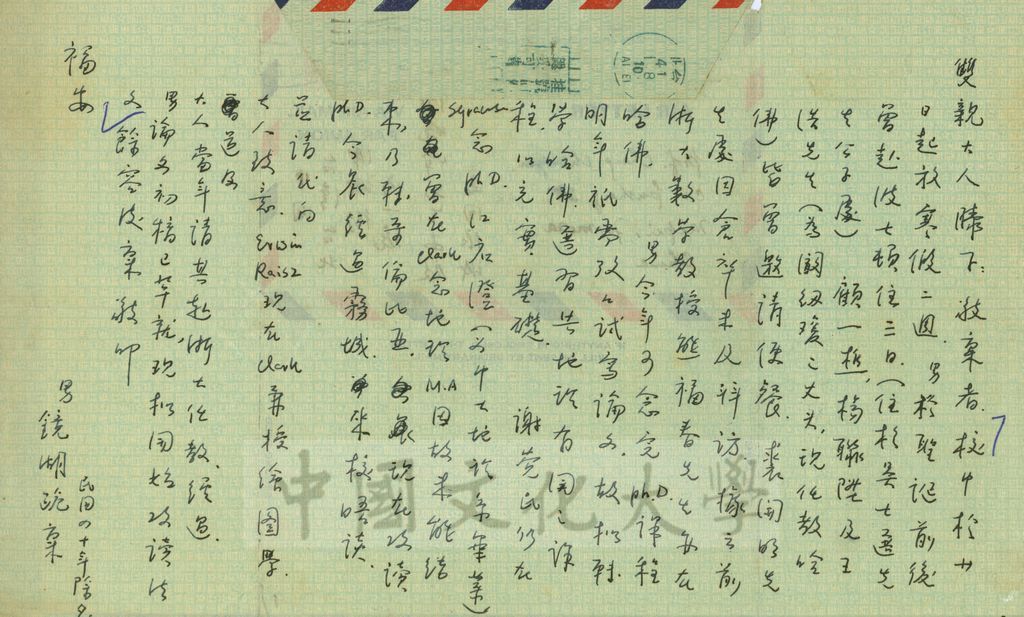 雙親大人膝下：敬稟者，校中於廿
日起放寒假二週，男於聖誕前後
曾赴波士頓住三日，（住於吳士選先
生公子處）顧一樵，楊聯陞及王
洪先生（為闞紉瓊之丈夫，現任教哈
佛）皆曾邀請便餐。裘開明先
生處因倉卒未及拜訪。據云前
浙大數學教授熊福春先生亦在
哈佛。男今年可念完ph.D.課程
明年祇需考口試寫論文，故擬轉
學哈佛，選習其地該有關之課
程，以充實基礎。謝覺民仍在
Syracuse念ph.D.江启澄（為中大地
曾在Clark念地理M.A因故未能結
束，乃轉哥倫比亞，現在攻讀
ph.D.今晨經過霧城，來校晤談。
並請代向
大人致意。Erwin Raisz現在Clark兼授繪圖學。
曾道及
大人當年請其赴浙大任教，經過。
男論文初稿已草就，現擬開始攻讀法
文，餘容後稟，敬叩
福安
男 鏡湖跪稟
民国四十年除夕
中國文化大學